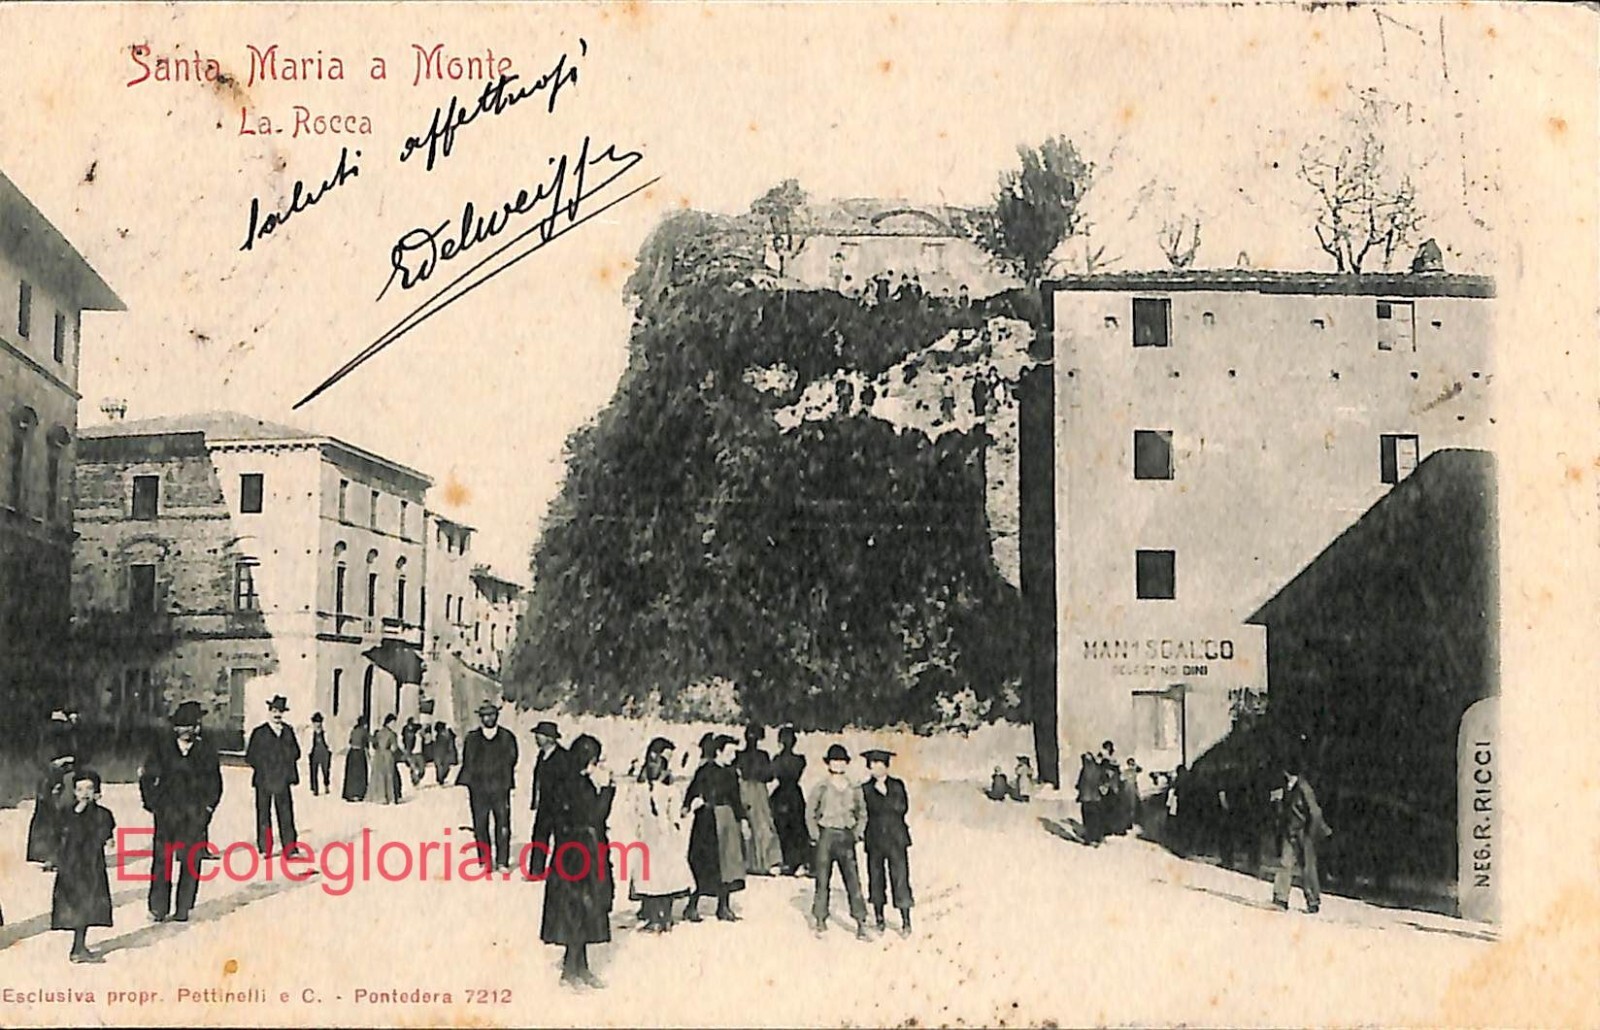 Santa Maria a Monte
La Rocca
saluti affettuosi
Edelweiss
MANISCALCO
CELESTINO DINI
NEG. R. RICCI
Ercolegloria.com
Esclusiva propr. Pettinelli e C. - Pontedera 7212